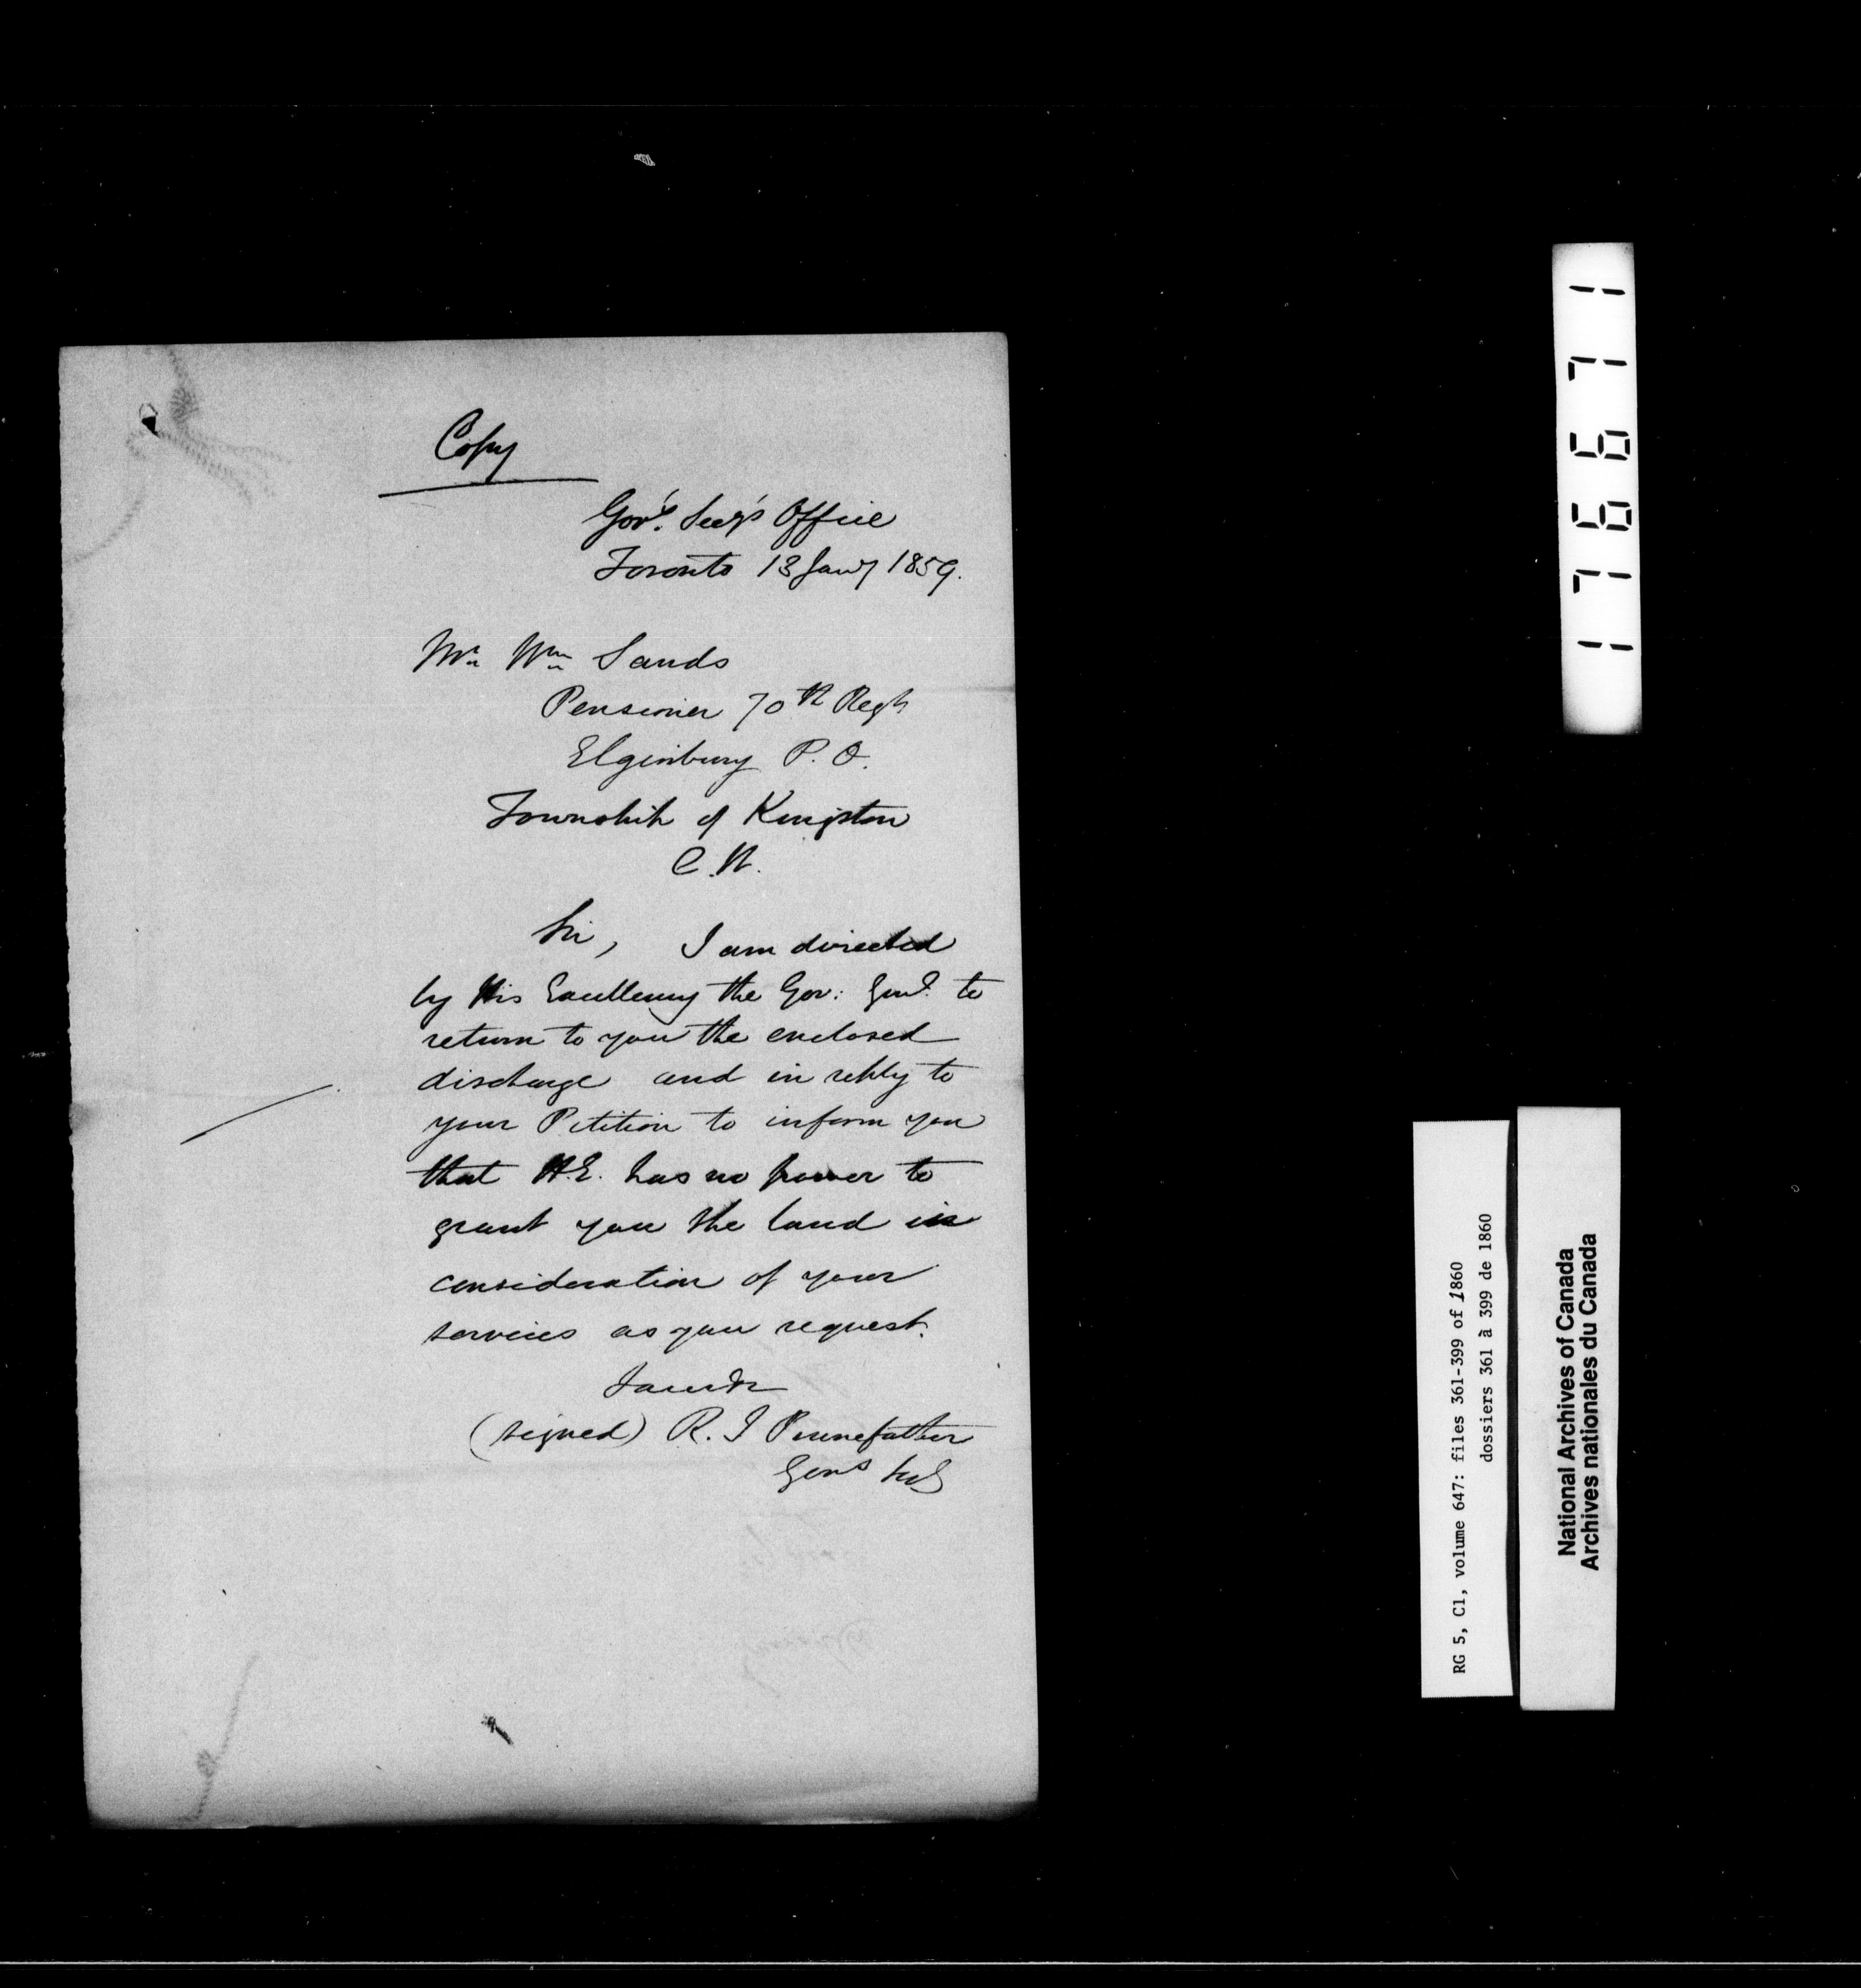 Copy
Gov.r Secy's Office
Toronto 13 Jany 1859.
Mr Wm Sands
Pensioner 70th Regt
Elginbury P. O.
Township of Kingston
C.W.
Sir, I am directed
by His Excellency the Gov: Genl. to
return to you the enclosed
discharge and in reply to
your Petition to inform you
that H.E. has no power to
grant you the land in
consideration of your
services as you request.
I am &c
(signed) R. T Pennefather
Govs Secy
1176671
RG 5, C1, volume 647: files 361-399 of 1860
dossiers 361 à 399 de 1860
National Archives of Canada
Archives nationales du Canada